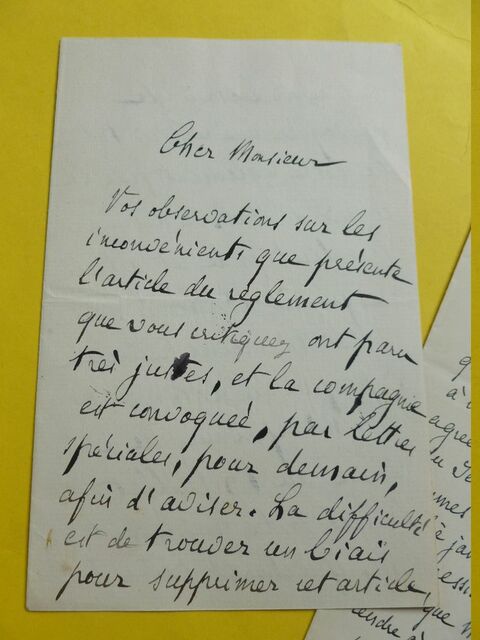 Cher Monsieur
Vos observations sur les
inconvénients que présente
l'article du règlement
que vous critiquez ont paru
très justes, et la compagnie
est convoquée, par lettres
spéciales, pour demain,
afin d'aviser. La difficulté
est de trouver un biais
pour supprimer cet article,